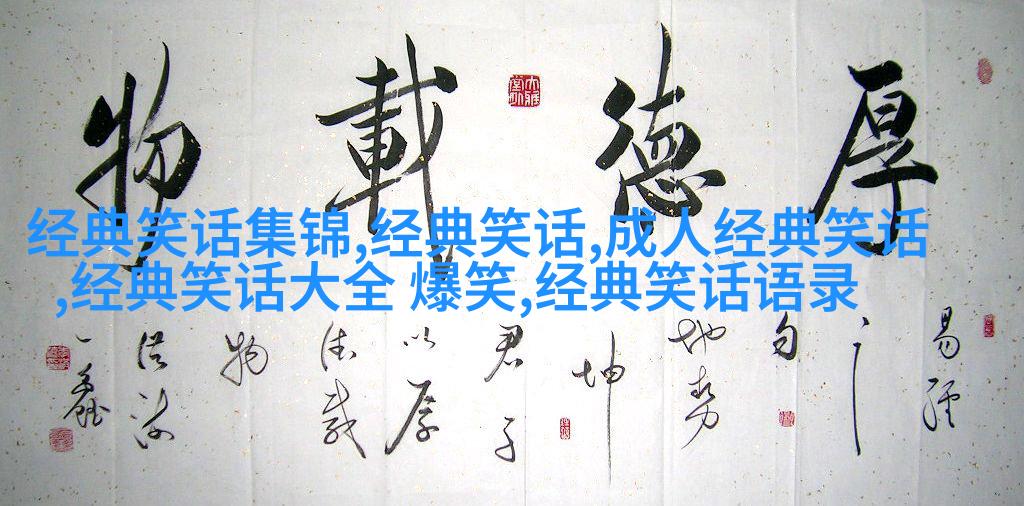 厚德載物
经典笑话集锦,经典笑话,成人经典笑话
,经典笑话大全 爆笑,经典笑话语录
易經
之
句
地勢
坤
君子
以厚
德載
物